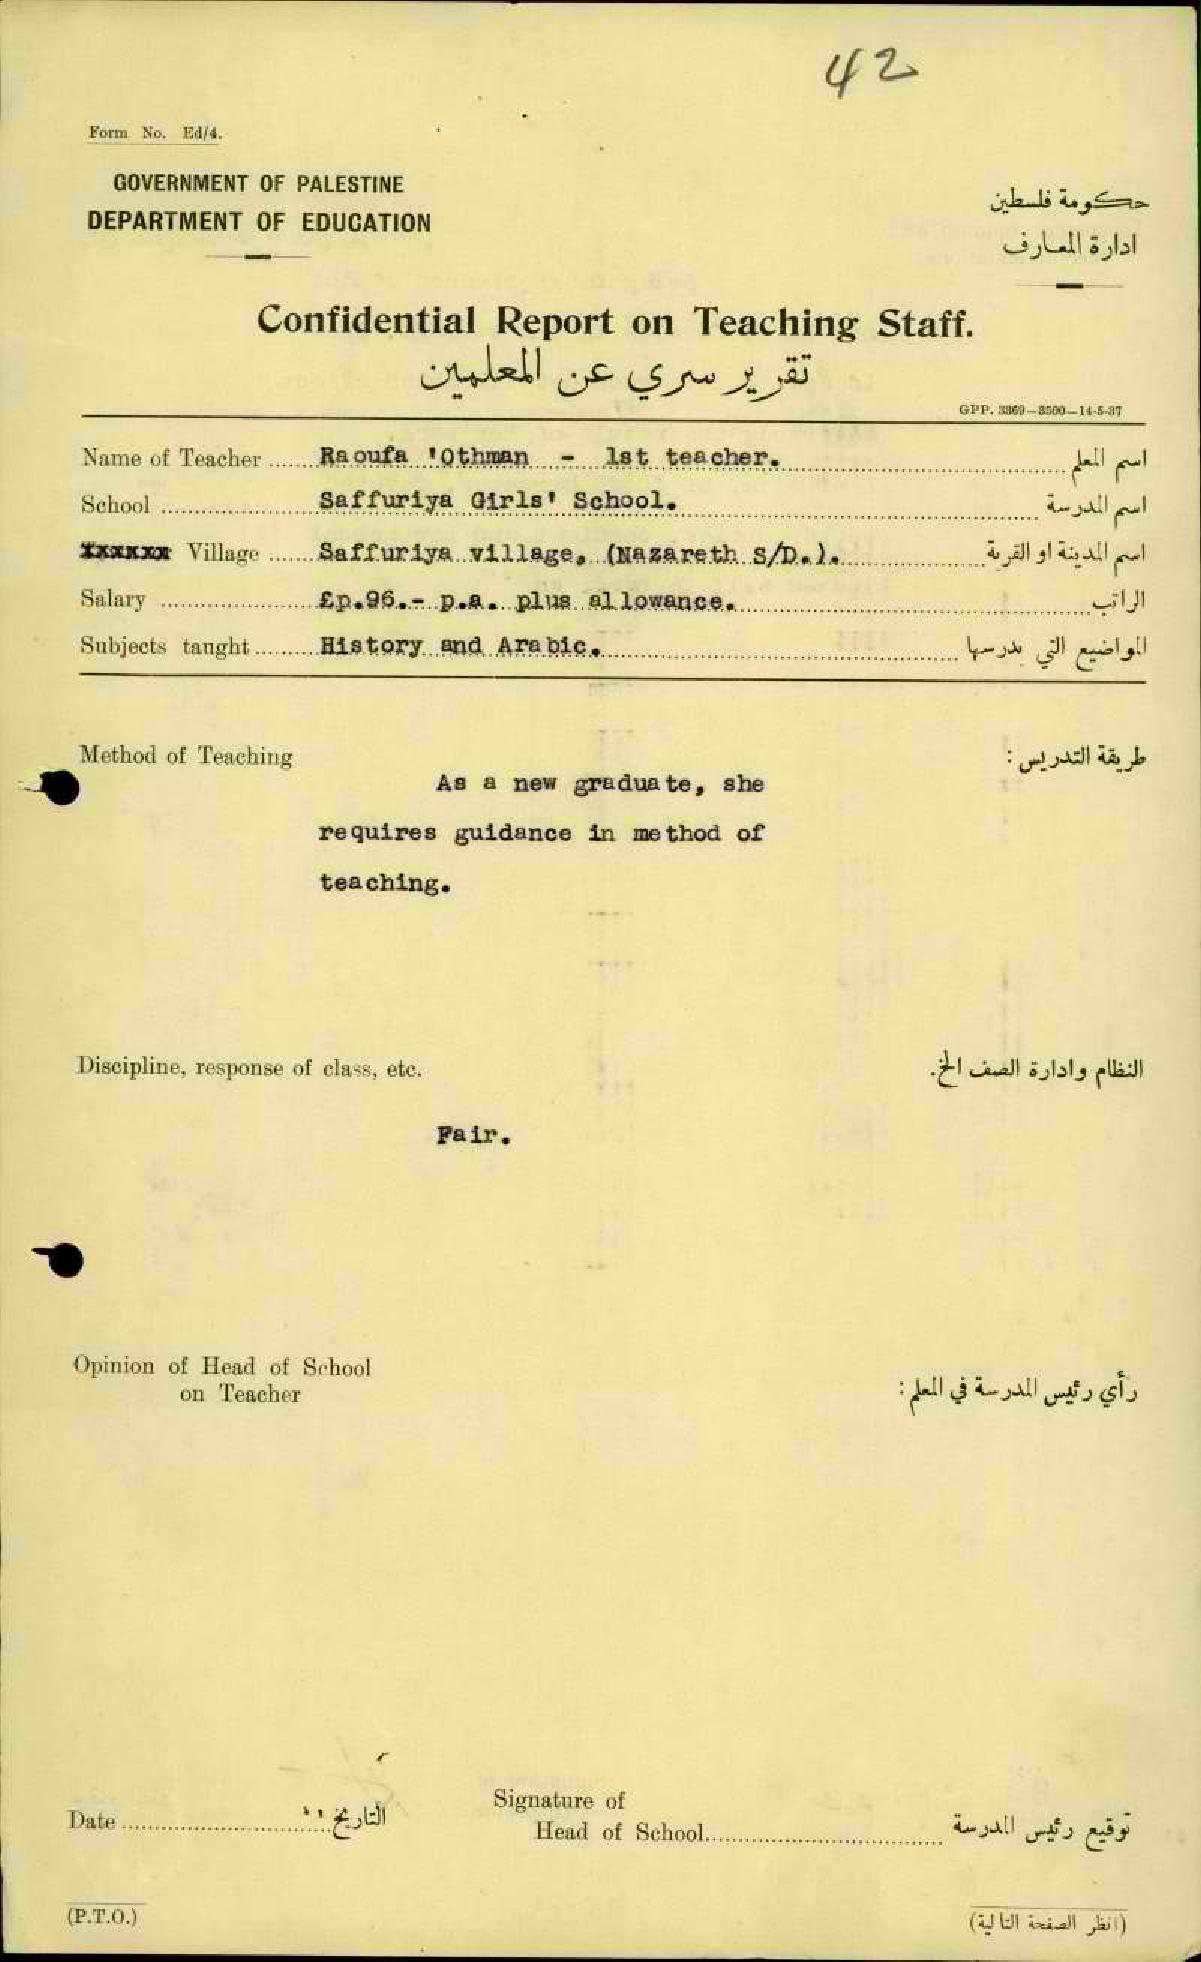 42
Form No. Ed/4.
GOVERNMENT OF PALESTINE
DEPARTMENT OF EDUCATION
حكومة فلسطين
ادارة المعارف
Confidential Report on Teaching Staff.
تقرير سري عن المعلمين
GPP. 3369—3500—14-5-37
Name of Teacher ...... Raoufa 'Othman - 1st teacher. ...... اسم المعلم
School ...... Saffuriya Girls' School. ...... اسم المدرسة
xxxxxx Village ...... Saffuriya village, (Nazareth S/D.). ...... اسم المدينة او القرية
Salary ...... £p.96.- p.a. plus allowance. ...... الراتب
Subjects taught ...... History and Arabic. ...... المواضيع التي يدرسها
Method of Teaching
طريقة التدريس :
As a new graduate, she
requires guidance in method of
teaching.
Discipline, response of class, etc.
النظام وادارة الصف الخ.
Fair.
Opinion of Head of School
on Teacher
رأي رئيس المدرسة في المعلم :
Date ...... التاريخ
Signature of
Head of School ...... توقيع رئيس المدرسة
(P.T.O.)
(انظر الصفحة التالية)